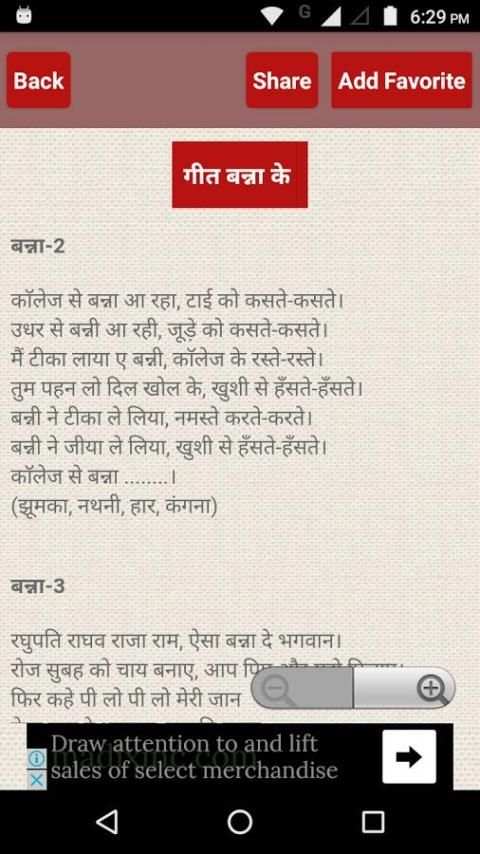 G
6:29 PM
Back
Share
Add Favorite
गीत बन्ना के
बन्ना-2
कॉलेज से बन्ना आ रहा, टाई को कसते-कसते।
उधर से बन्नी आ रही, जूड़े को कसते-कसते।
मैं टीका लाया ए बन्नी, कॉलेज के रस्ते-रस्ते।
तुम पहन लो दिल खोल के, खुशी से हँसते-हँसते।
बन्नी ने टीका ले लिया, नमस्ते करते-करते।
बन्नी ने जीया ले लिया, खुशी से हँसते-हँसते।
कॉलेज से बन्ना ........।
(झूमका, नथनी, हार, कंगना)
बन्ना-3
रघुपति राघव राजा राम, ऐसा बन्ना दे भगवान।
रोज सुबह को चाय बनाए, आप
फिर कहे पी लो पी लो मेरी जान
Draw attention to and lift
sales of select merchandise